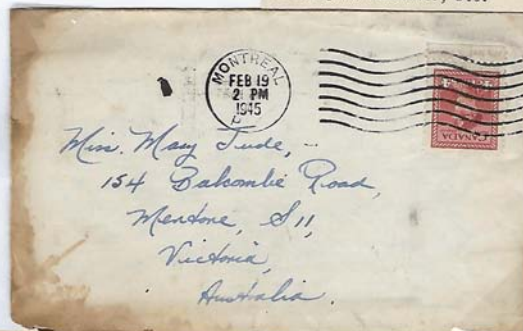 MONTREAL
FEB 19
2 PM
1945
CANADA
Miss. Mary Jude,
154 Balcombe Road,
Mentone, S11,
Victoria,
Australia.